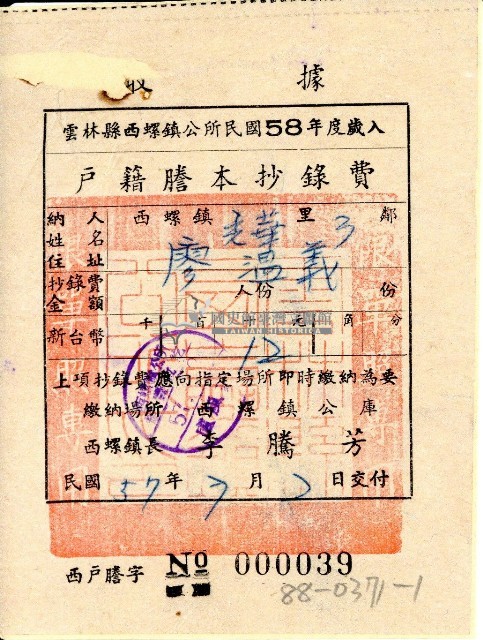 收 據
雲林縣西螺鎮公所民國58年度歲入
戶籍謄本抄錄費
納 人 西螺鎮 光華 里 3 鄰
姓 名
住 址 廖温義
抄錄費 人份 份
金 額
新台幣 千 百 十 元 角 分
12
上項抄錄費應向指定場所即時繳納為要
繳納場所 西螺鎮公庫
西螺鎮長 李騰芳
民國 57 年 7 月 2 日交付
西戶謄字 № 000039
88-0371-1
國史館臺灣文獻館
TAIWAN HISTORICA